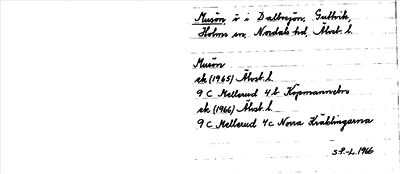 Musön, ö i Dalbosjön, Gullvik,
Holms sn, Nordals hd, Älvsb. l.
Musön
ek (1965) Älvsb. l.
9 C Mellerud 4 b Köpmannebro
ek (1966) Älvsb. l.
9 C Mellerud 4 c Norra Kräklingarna
S.P.-L. 1966